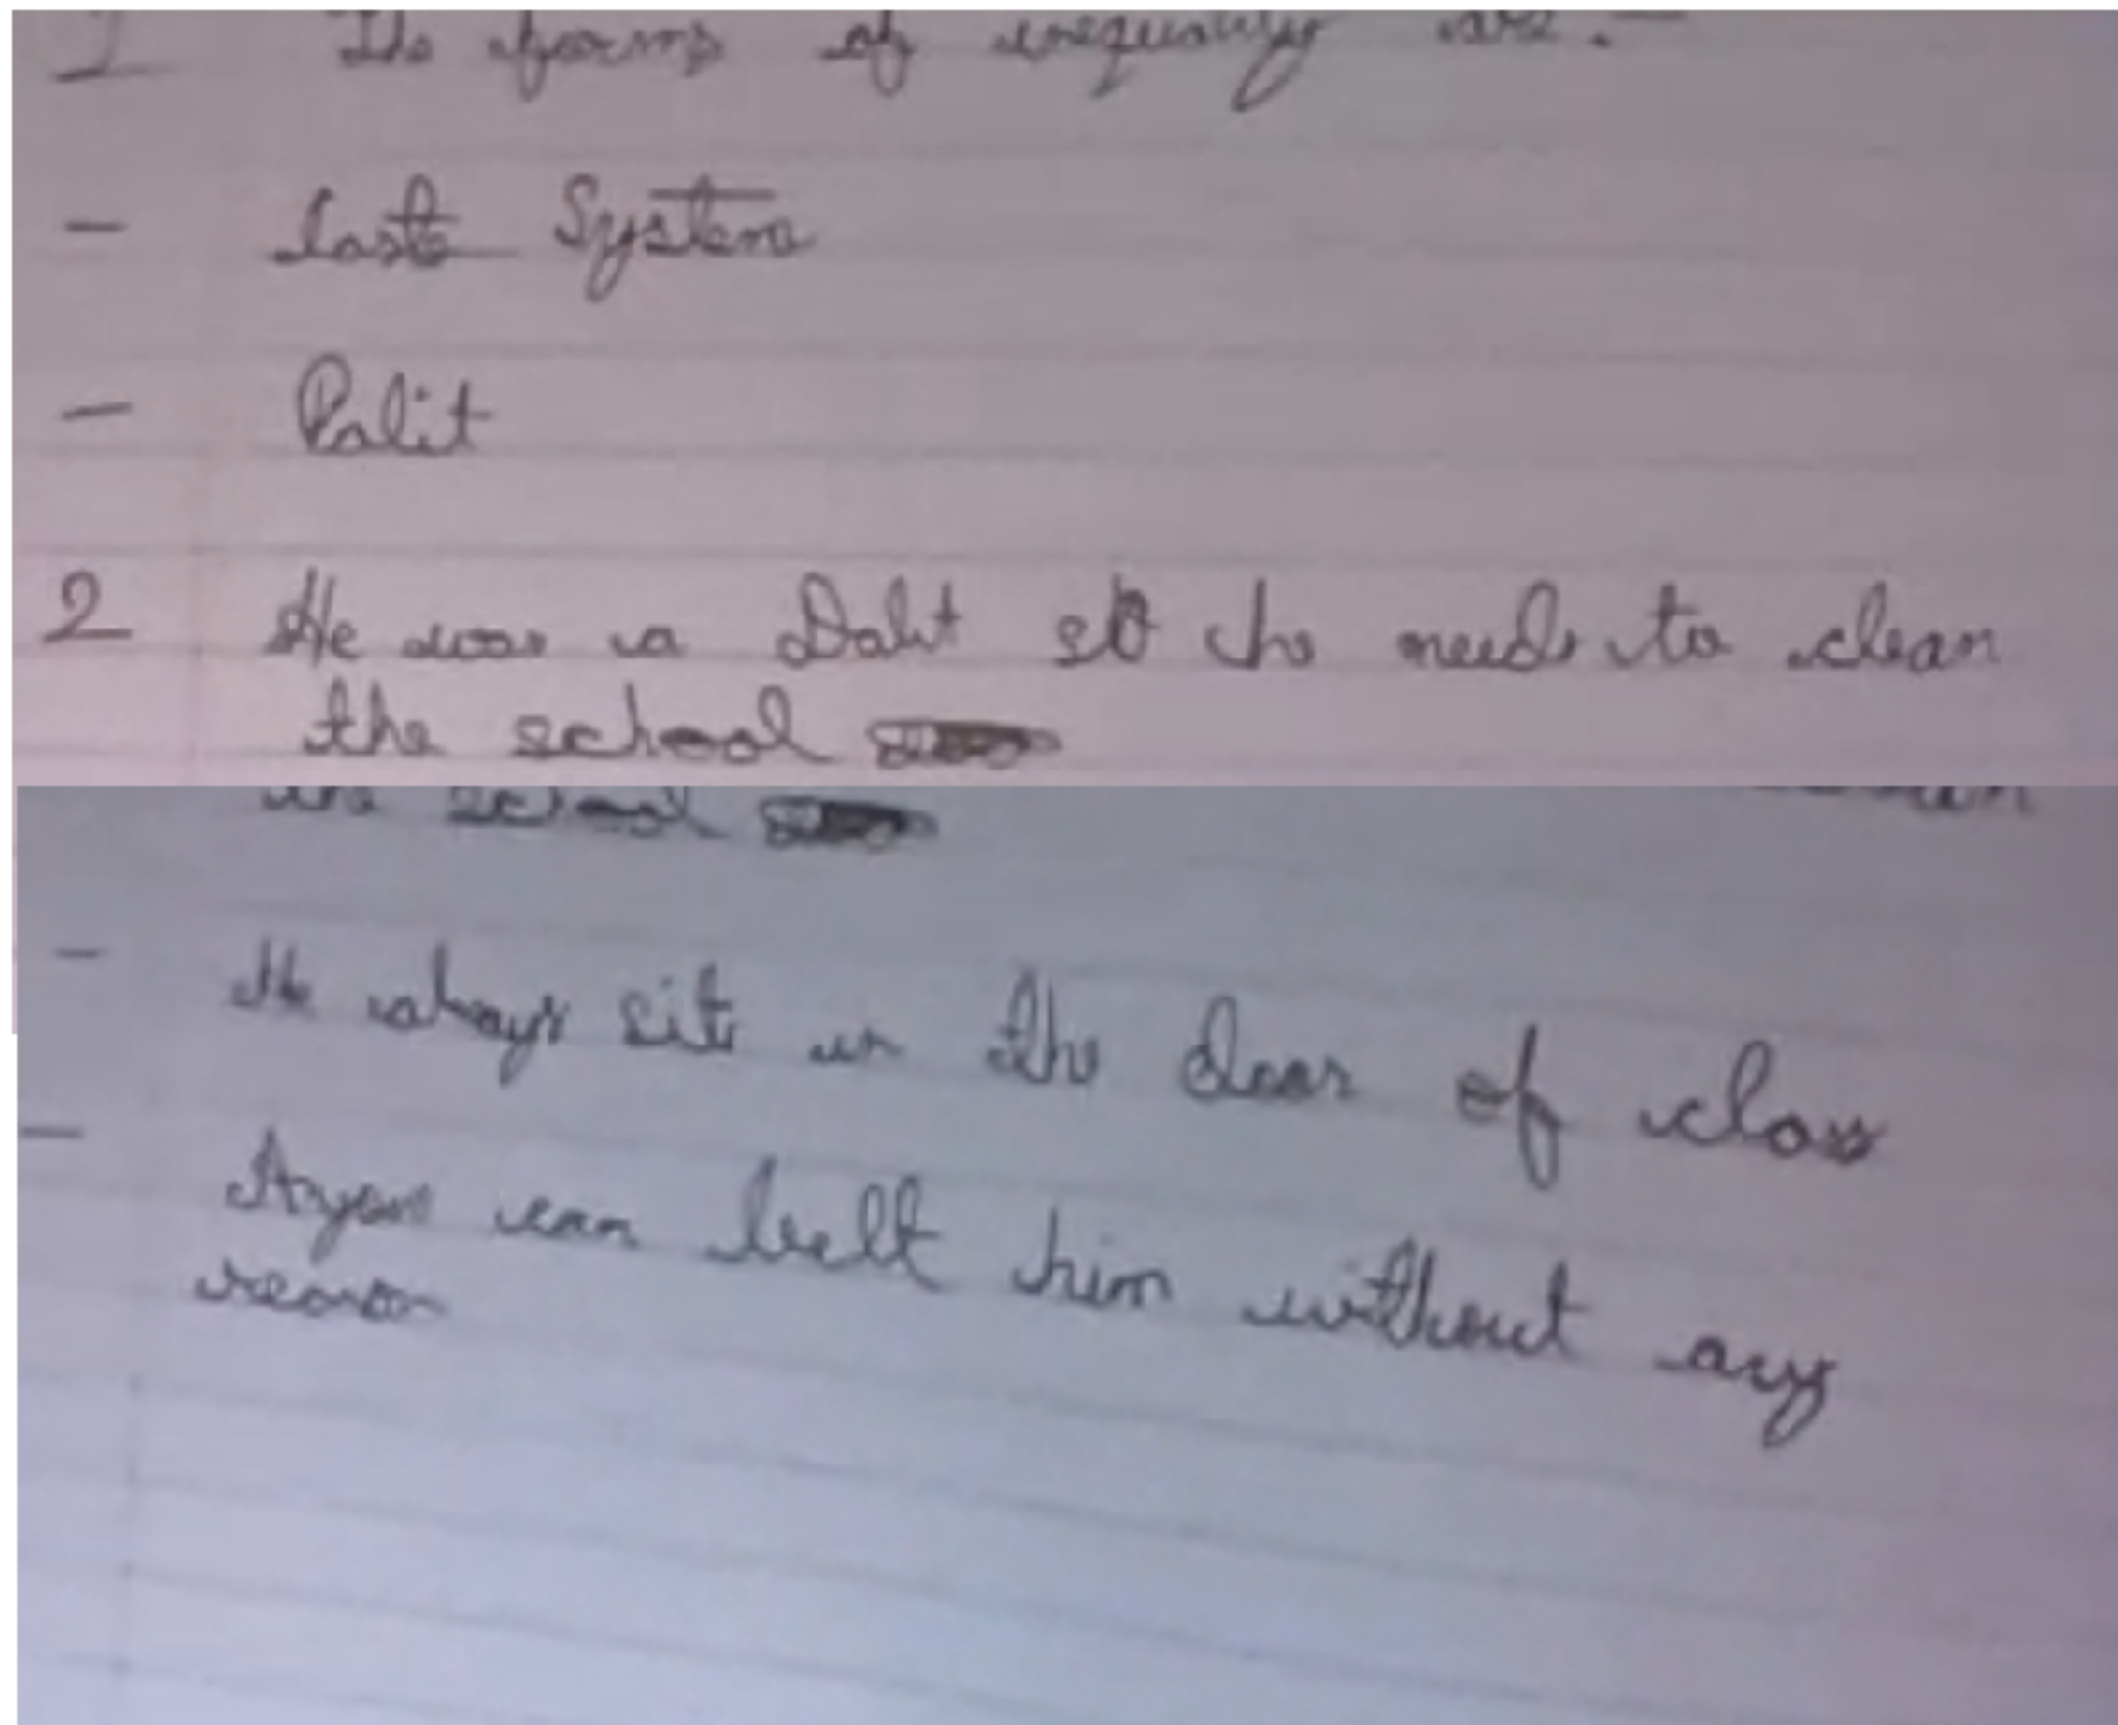 1 The forms of inequality are :-
- Caste System
- Dalit
2 He was a Dalit so he needs to clean
the school
the school
- He always sit in the door of class
- Anyone can him without any
reason